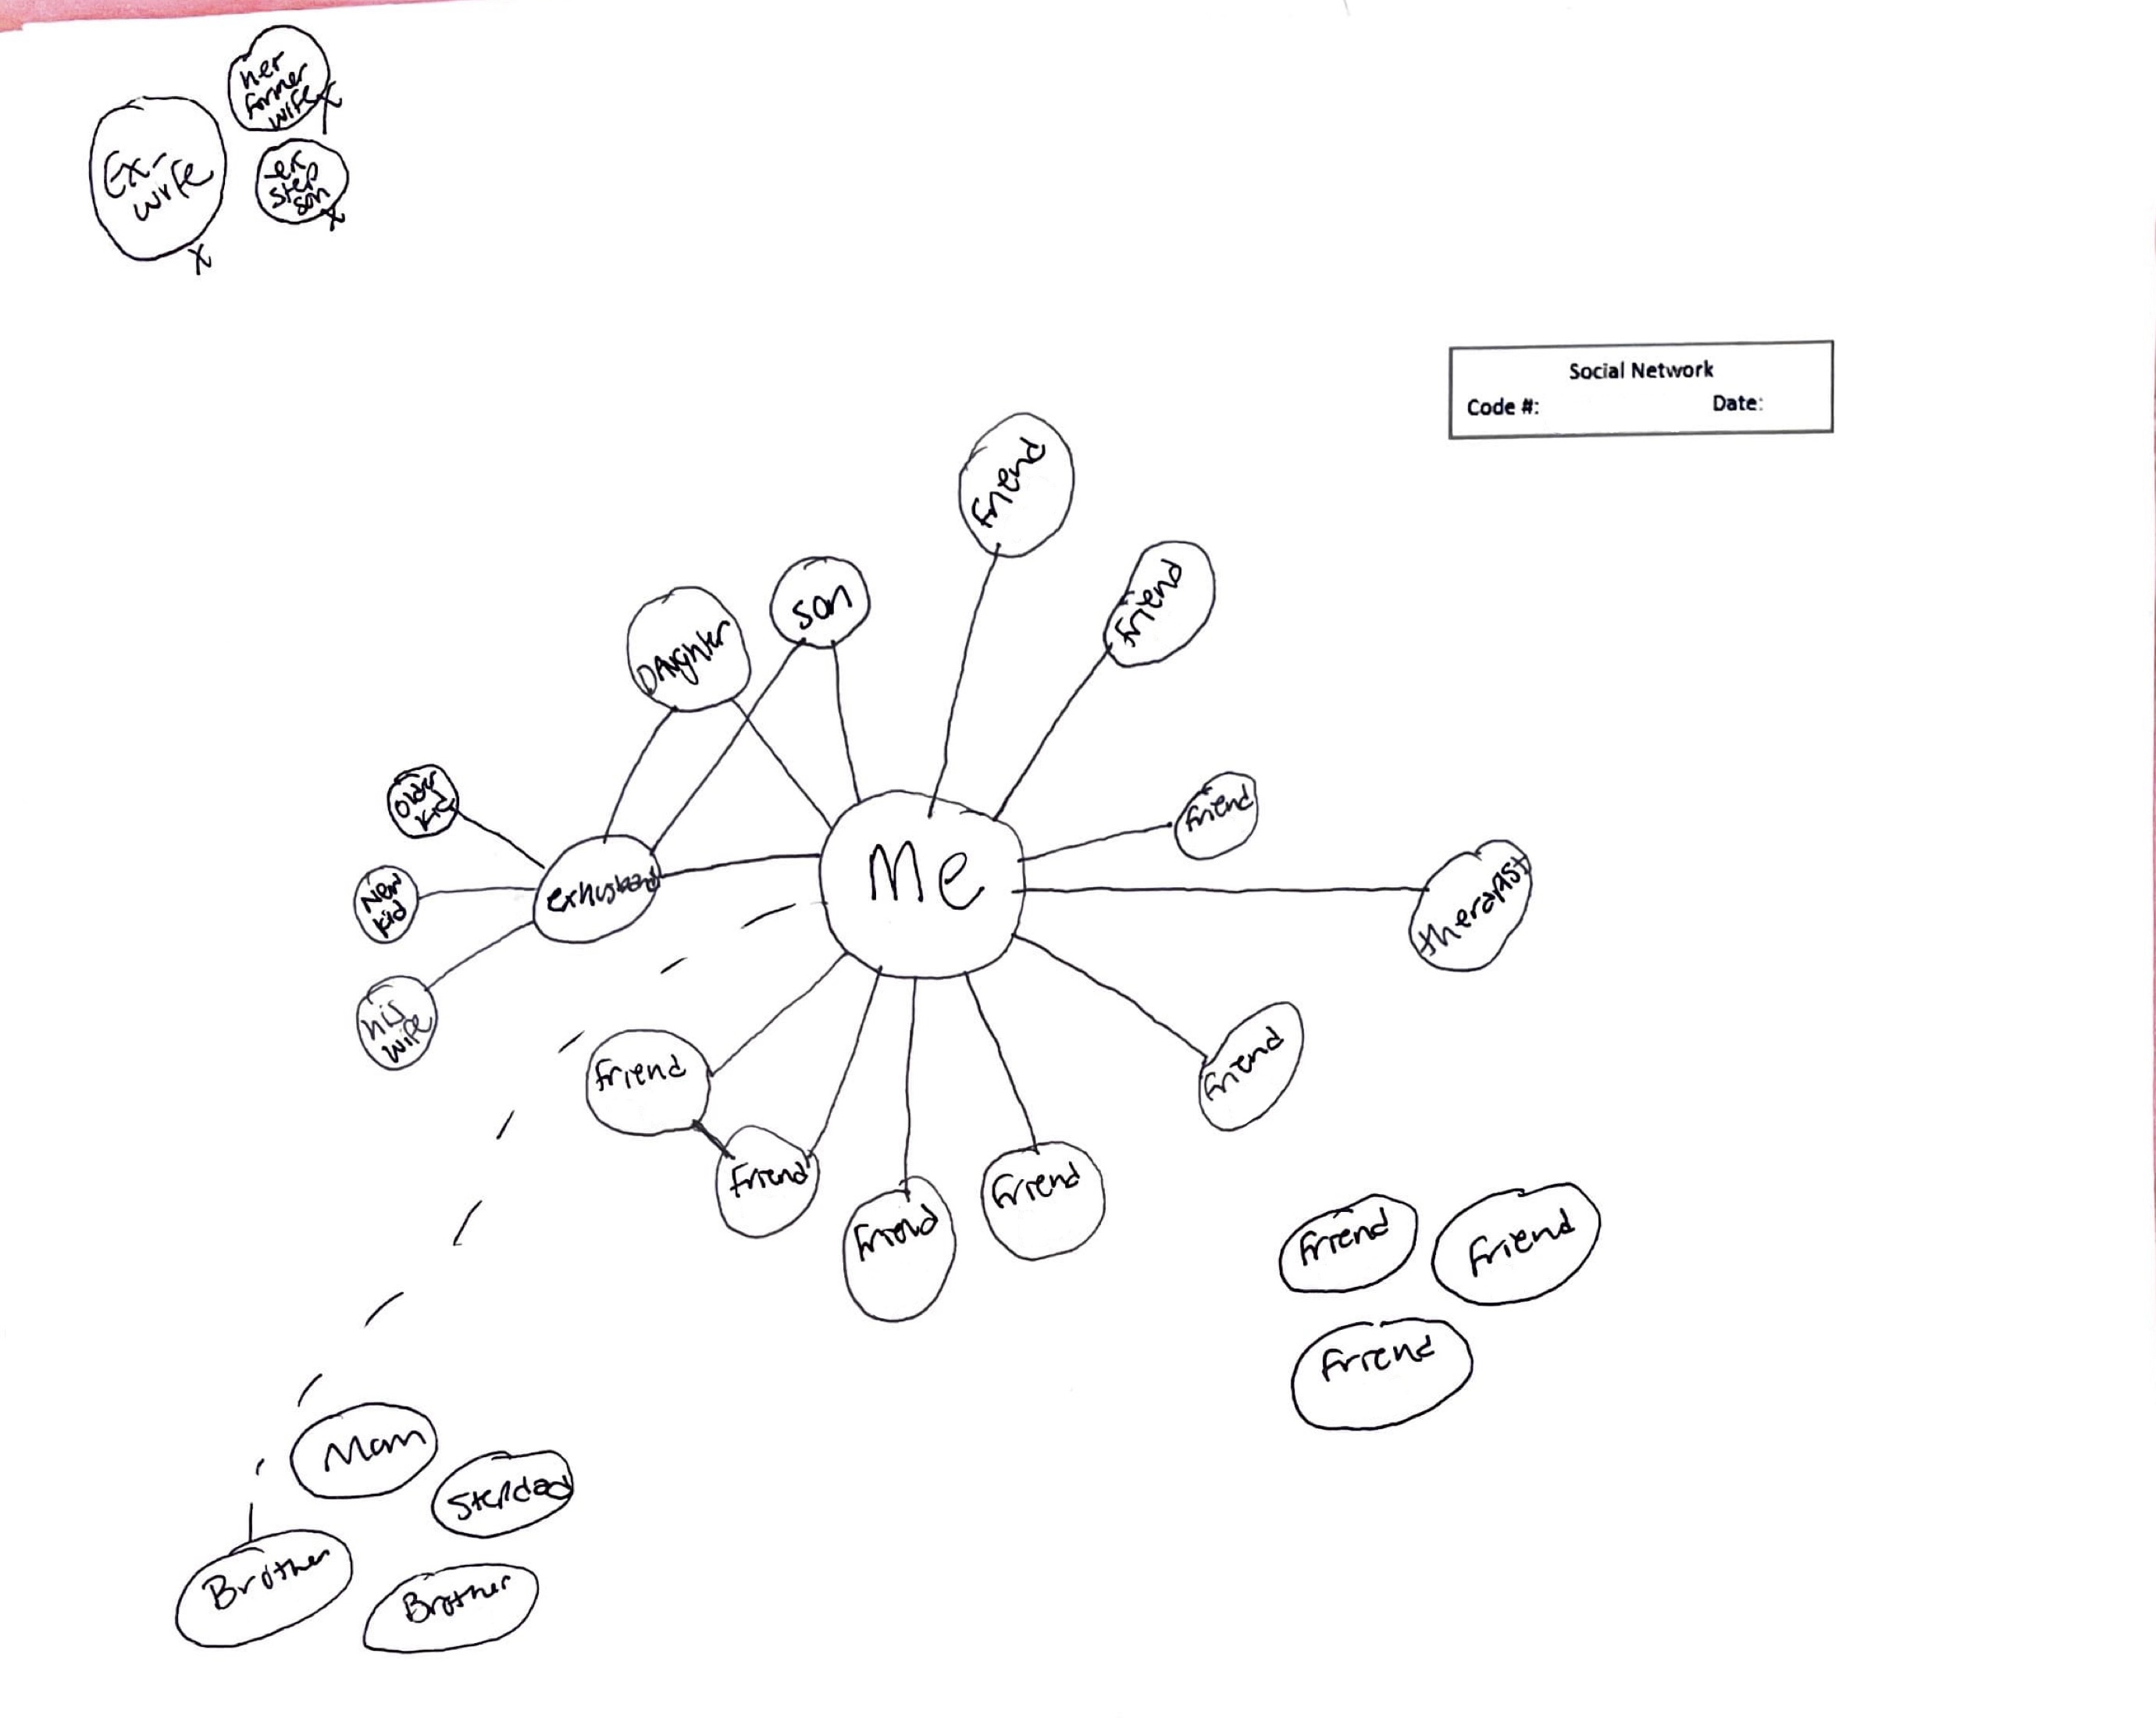 her
former
wife
x
Ex-
wife
x
ex
step
son
x
Social Network
Code #: Date:
Friend
Friend
son
DAughter
Older
kid
Friend
New
kid
exhusband
Me
therapist
his
wife
Friend
Friend
Friend
Friend
Friend
Friend
Friend
Friend
Mom
Stepdad
Brother
Brother